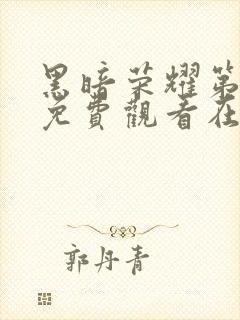 黑暗荣耀第
免費觀看在
郭丹青